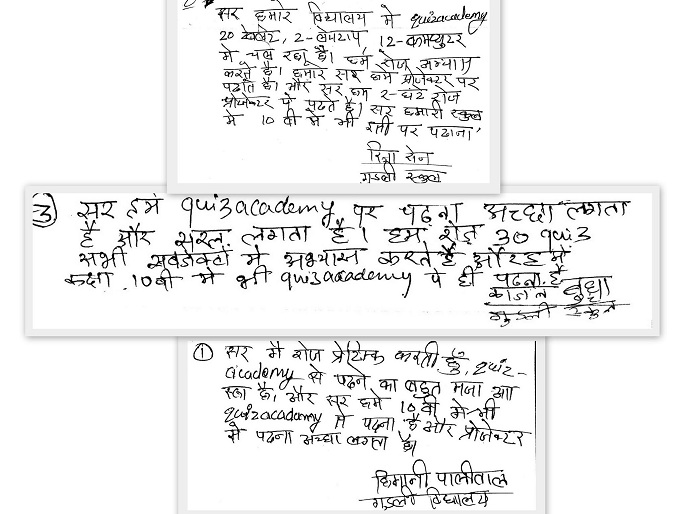 सर हमारे विद्यालय में quizacademy
20 टेबलेट, 2-लेपटाप 12-कम्प्युटर
में चल रहा है। हम रोज अभ्यास
करते है। हमारे सर हम प्रोजेक्टर पर
पढाते है। और सर हम 2-घंटे रोज
प्रोजेक्टर पे पढते है। सर हमारी स्कुल
मे 10 वी मे भी पर पढाना
सेन
गडली स्कुल
3 सर हमे quizacademy पर पढ़ना अच्छा लगता
है और सरल लगता है। हम रोज 30 quiz
सभी सब्जेक्टो मे अभ्यास करते है और हमे
कक्षा 10वी मे भी quizacademy पे ही पढना है
काजल बुद्धा
गुडली स्कुल
1 सर मै रोज प्रेटिक्स करती हूँ, quiz-
academy से पढने का बहुत मजा आ
रहा है, और सर हमे 10 वी मे भी
quizacademy मे पढना है और प्रोजेक्टर
मे पढना अच्छा लगता है।
हिमानी पालीवाल
गडली विद्यालय